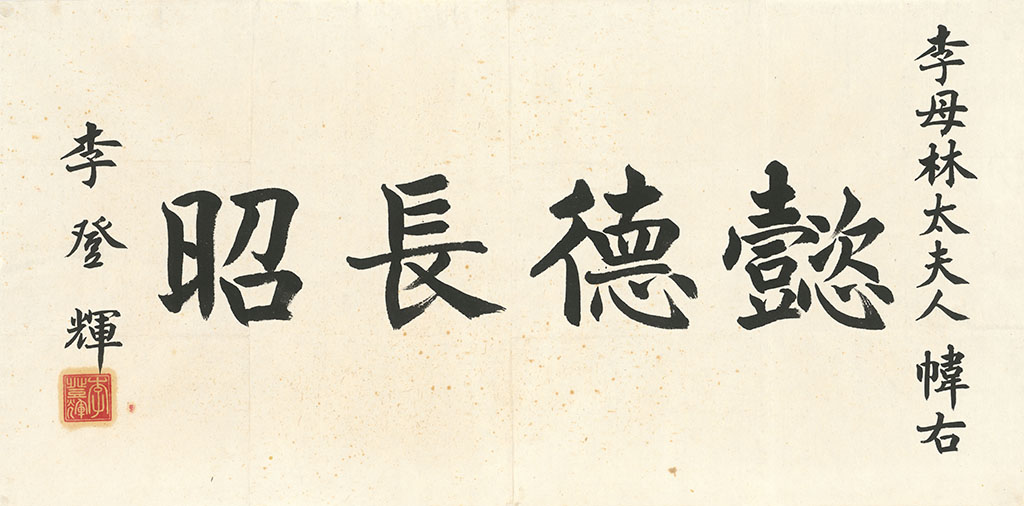 李母林太夫人 幃右
懿德長昭
李登輝
李登輝